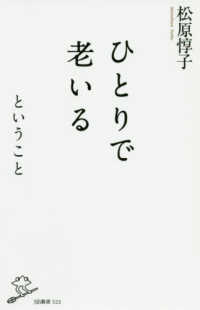 松原惇子
ひとりで
老いる
ということ
SB新書 523